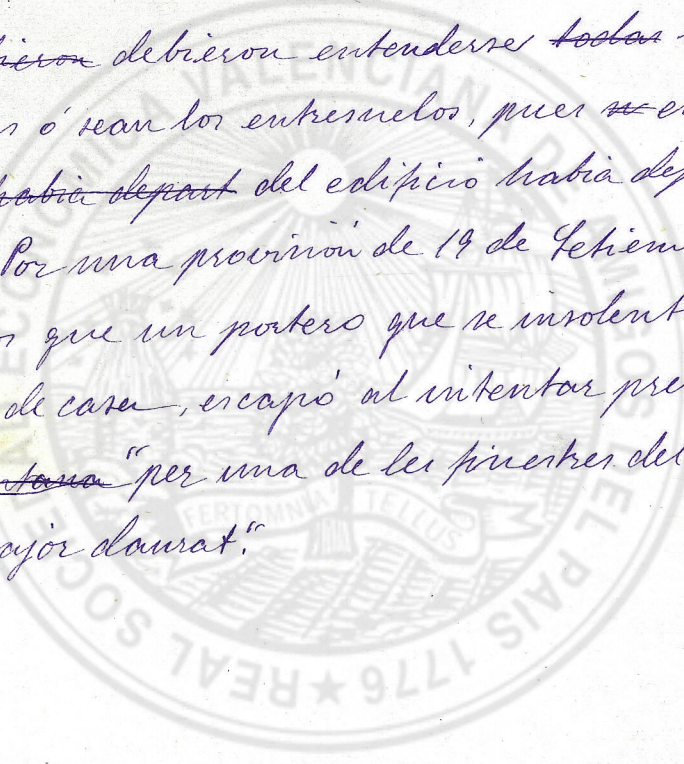 debieron entenderse todas
ó sean los entresuelos, pues
habia depart del edificio habia dep
Por una provision de 19 de Setiem
que un portero que se insolent
de casa, escapó al intentar pre
tana "per una de les finestres del
ajor daurat".
REAL SOCIEDAD ECONOMICA VALENCIANA DE AMIGOS DEL PAIS 1776
FERTOMNI